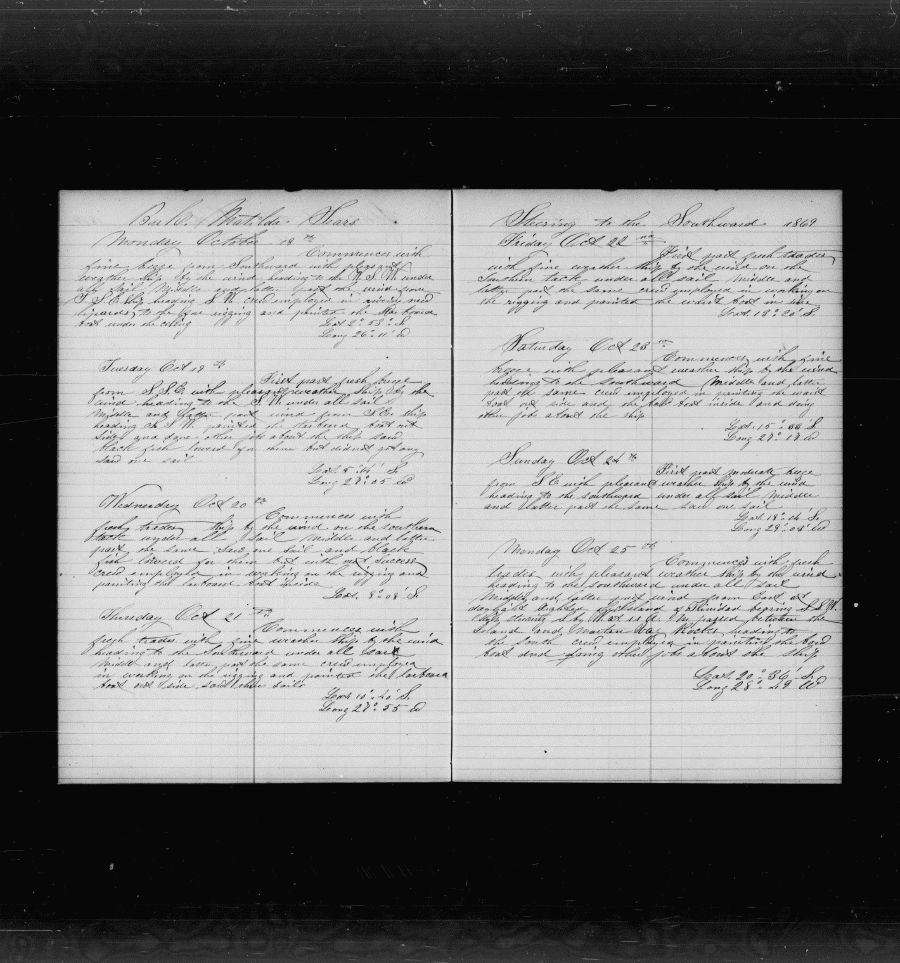 Bark Matilda Sears
Monday October 18th
Commences with
fine breeze from Southward with pleasant
weather ship by the wind heading to the W.S.W under
all sail Middle and latter part the wind from
S.S.E ship heading S.W. crew employed in
to fore rigging and painted the Starboard
boat under the ceiling
Lat 2° 58' S.
Long 26° 11' W
Tuesday Oct 19th
First part fresh breeze
from S.S.E with pleasant weather ship by the
wind heading to the S.W under all sail
Middle and latter part wind from S.E. ship
heading S.S.W. painted the starboard boat out
side and done other jobs about the ship saw
black fish lowered for them but did not get any
saw one sail
Lat 5° 44' S
Long 28° 05 W
Wednesday Oct 20th
Commences with
fresh trades ship by the wind on the southern
tack under all sail Middle and latter
part the same saw one sail and black
fish lowered for them but with not success
crew employed in working on the rigging and
painting the larboard boat inside
Lat. 8° 08' S.
Thursday Oct 21st
Commences with
fresh trades with fine weather ship by the wind
heading to the Southward under all sail
Middle and latter part the same crew employed
in working on the rigging and painted the larboard
boat out side saw other sails
Lat 10° 40' S.
Long 28° 55 W
Steering to the Southward 1869
Friday Oct 22nd
First part fresh trades
with fine weather ship by the wind on the
Southern tack under all sail Middle and
latter part the same crew employed in working on
the rigging and painted the waist boat in side
Lat. 13° 20' S
Saturday Oct 23rd
Commences with fine
breeze with pleasant weather ship by the wind
heading to the southward Middle and latter
part the same crew employed in painting the waist
boat out side and the boat inside and doing
other jobs about the ship
Lat. 15° 44 S
Long 29° 19 W
Sunday Oct 24th
First part moderate breeze
from S.E with pleasant weather ship by the wind
heading to the southward under all sail Middle
and latter part the same saw one sail
Lat. 18° 04' S.
Long 29° 04' W
Monday Oct 25th
Commences with fresh
trades with pleasant weather ship by the wind
heading to the southward under all sail
Middle and latter part wind from East at
daylight sighted the Island of Trinidad bearing S.S.W.
Ship steering S by W at 10 A.M passed between the
Island and Martin Vas Rocks heading to
the South crew employed in painting the bow
boat and doing other jobs about the ship
Lat. 20° 36' S.
Long 28° 49 W